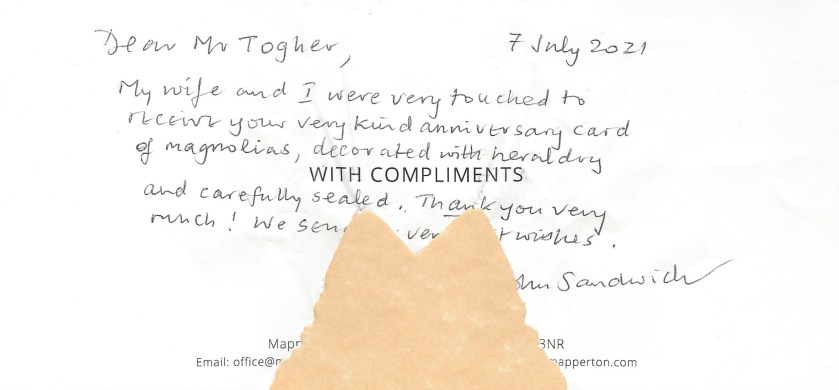 Dear Mr Togher,
7 July 2021
My wife and I were very touched to
receive your very kind anniversary card
of magnolias, decorated with heraldry
WITH COMPLIMENTS
and carefully sealed. Thank you very
much! We sen ver t wishes.
ohn Sandwich
Mapp 3NR
Email: office@m apperton.com